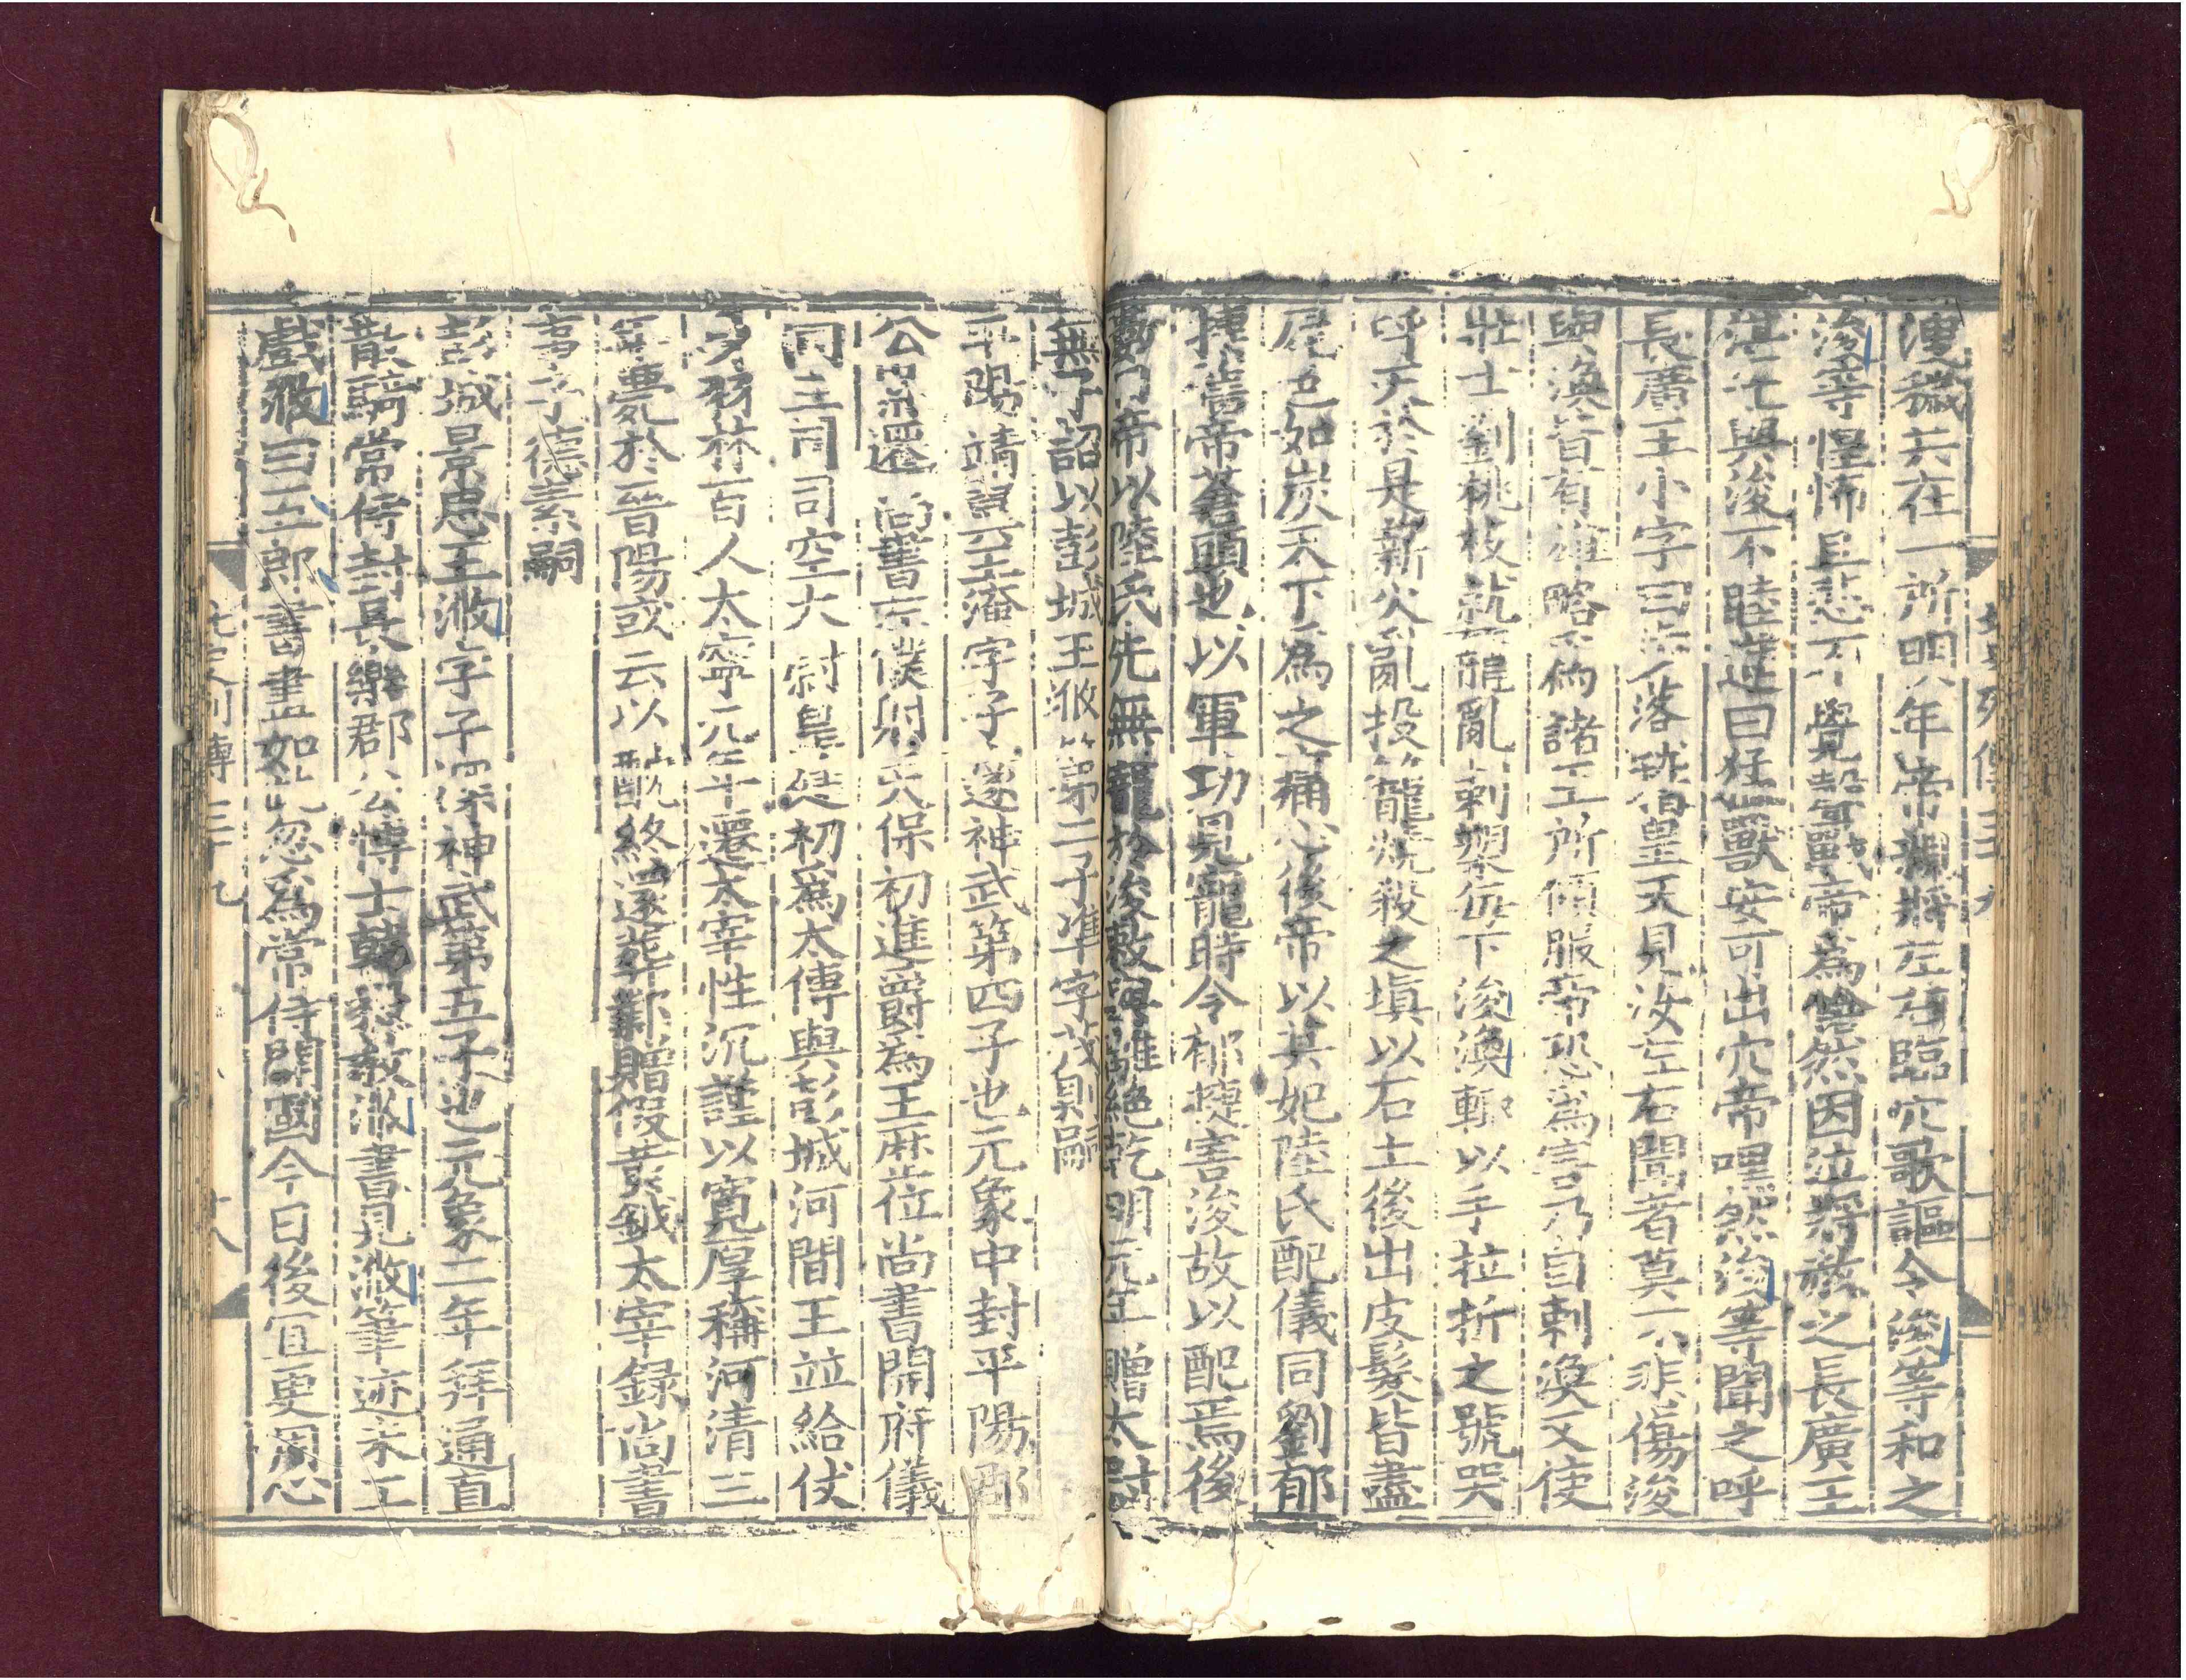 溲穢共在一所明年帝親將左右臨穴歌謳令浚等和之
浚等惶怖且悲不覺聲戰帝為愴然因泣將赦之長廣王
湛先與浚不睦進曰猛獸安可出穴帝嘿然浚等聞之呼
長廣王小字曰步落稽皇天見汝左右聞者莫不悲傷浚
與渙皆有雄略為諸王所傾服帝恐為害乃自刺渙又使
壯士劉桃枝就籠亂刺槊每下浚渙輒以手拉折之號哭
呼天於是薪火亂投籠燒殺之填以石土後出皮髮皆盡
尸色如炭天下為之痛心後帝以其妃陸氏配儀同劉郁
捷舊帝蒼頭也以軍功見寵時令郁捷害浚故以配焉後
數日帝以陸氏先無寵於浚敕與離絕乾明元年贈太尉
無子詔以彭城王浟第二子準字茂則嗣
平陽靖翼王淹字子邃神武第四子也元象中封平陽郡
公累遷尚書左僕射天保初進爵為王歷位尚書開府儀
同三司司空太尉皇建初為太傅與彭城河間王並給仗
身羽林百人太寧元年遷太宰性沉謹以寬厚稱河清三
年薨於晉陽或云以酖終還葬鄴贈假黃鉞太宰錄尚書
事子德素嗣
彭城景思王浟字子深神武第五子也元象二年拜通直
散騎常侍封長樂郡公博士韓毅教浟書見浟筆迹未工
戲浟曰五郎書畫如此忽為常侍開國今日後宜更用心
北史列傳三十九
十八